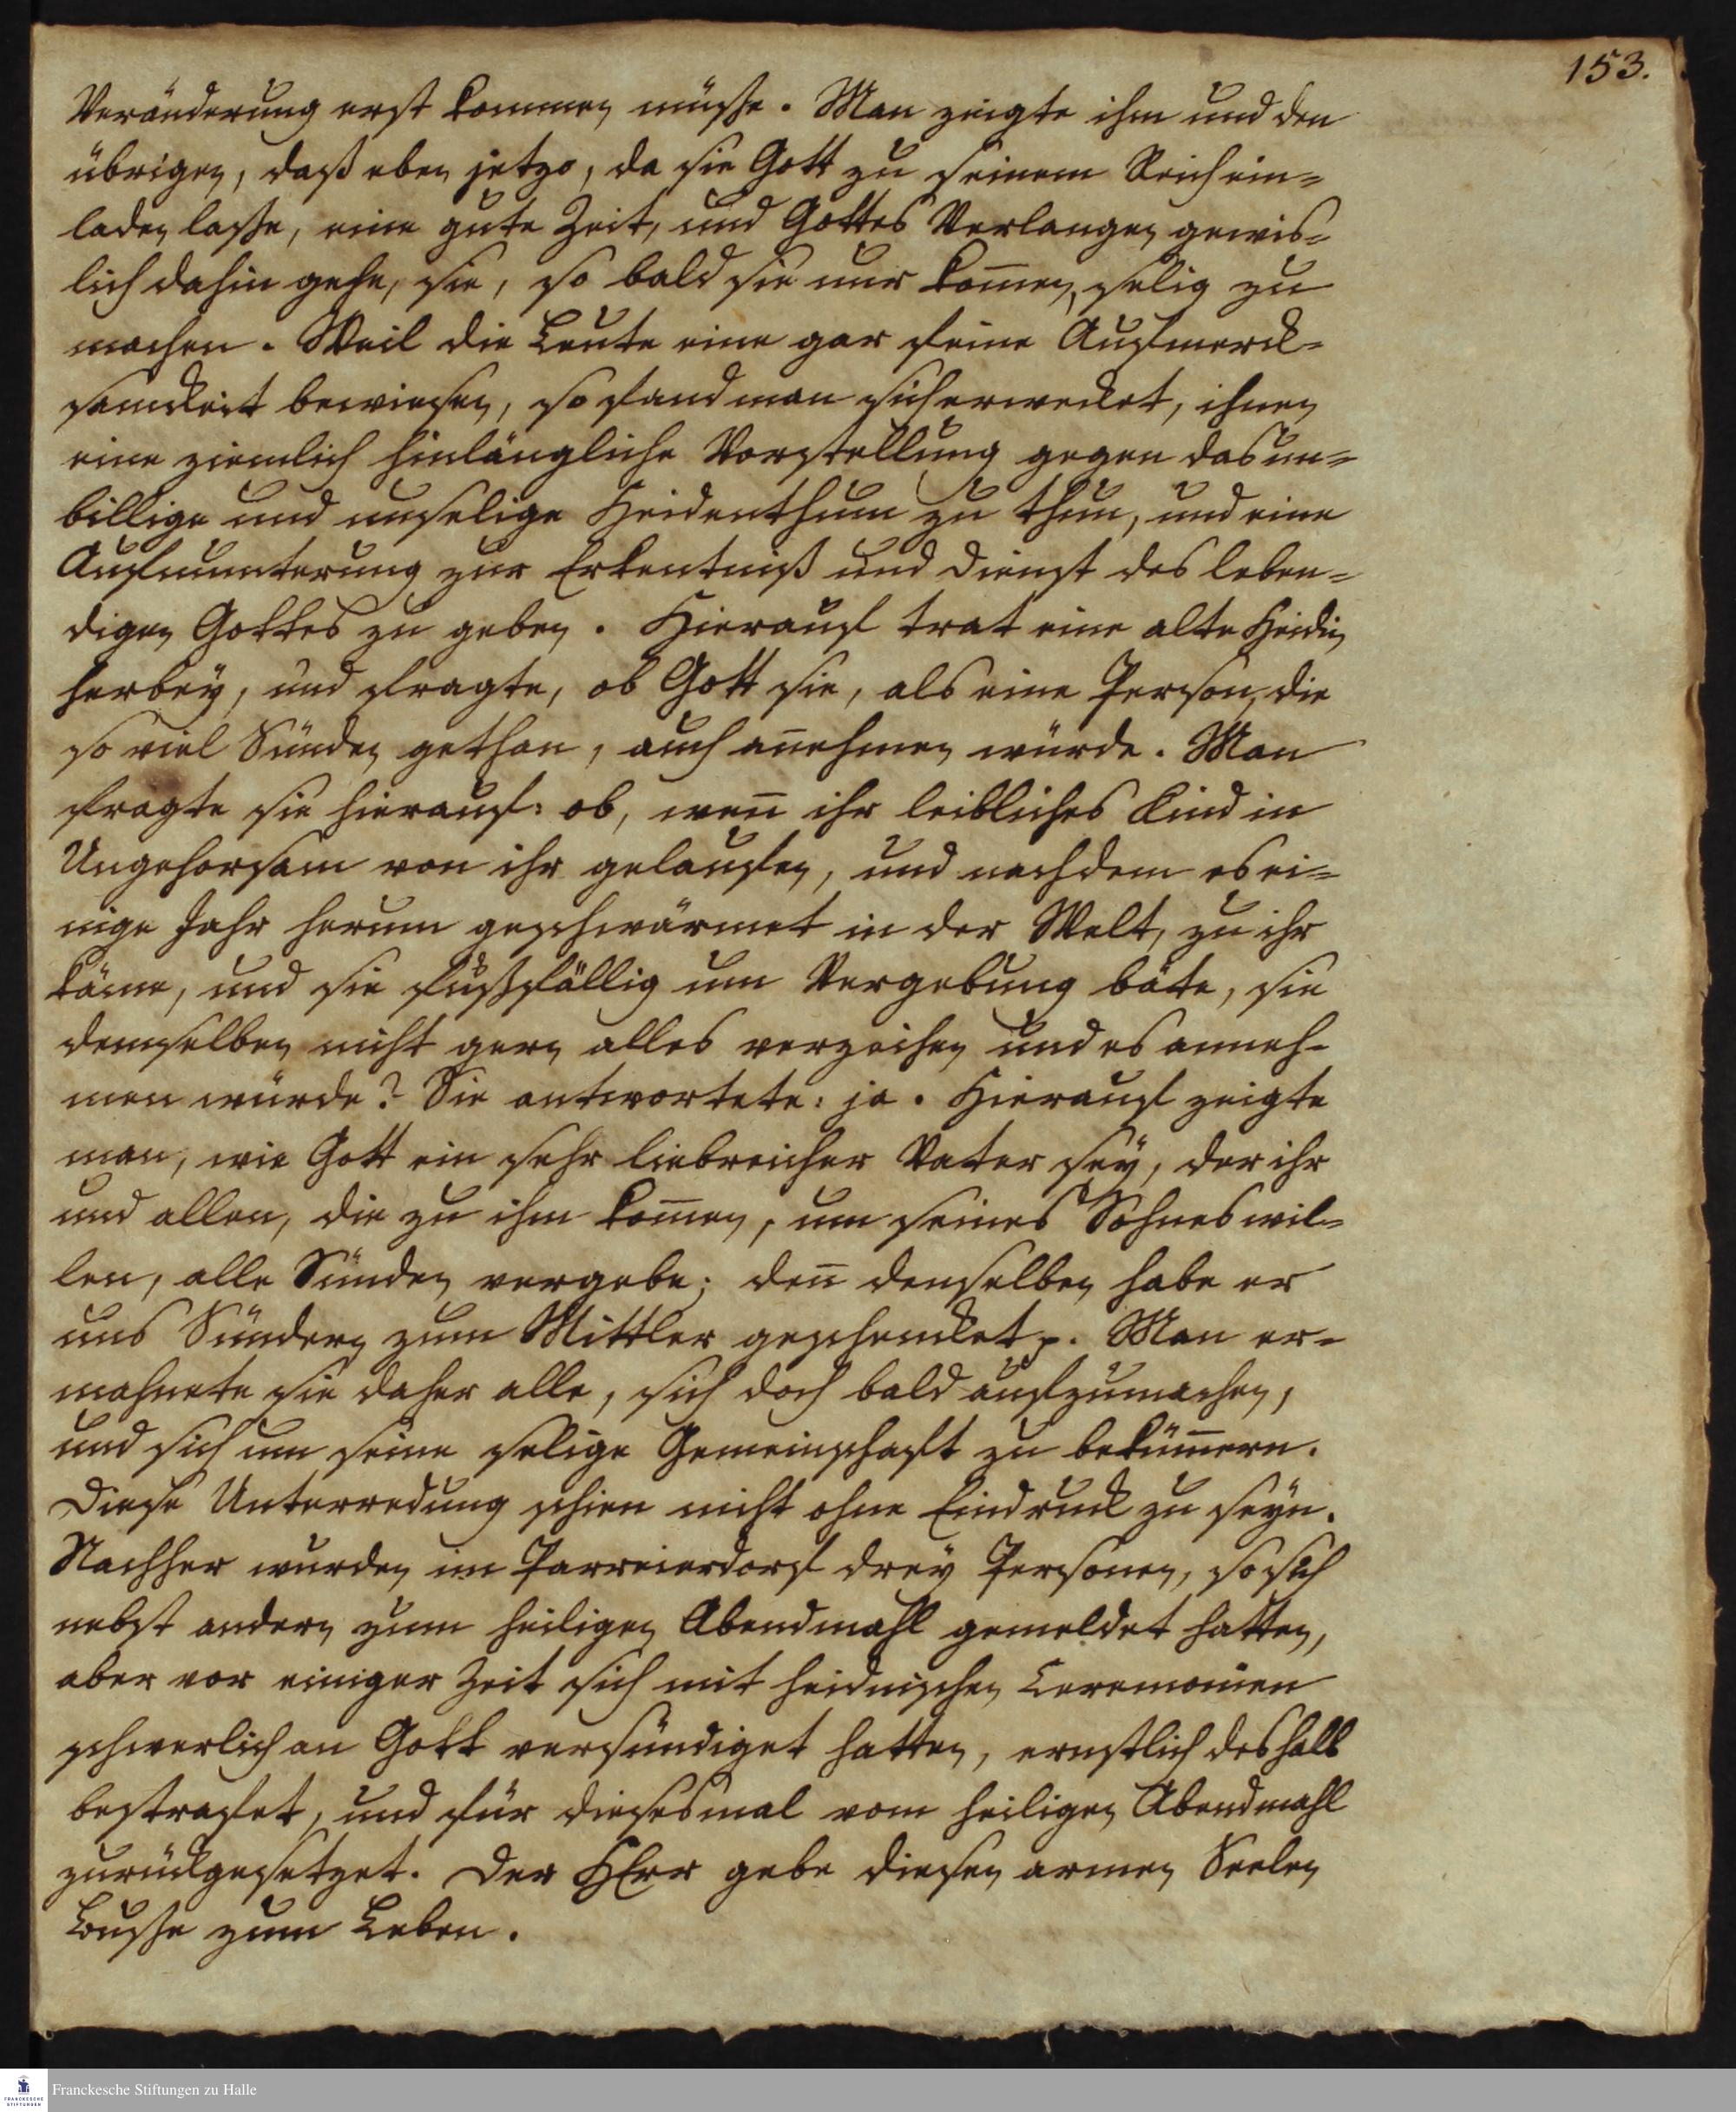 153.
Veränderung erst kommen müsse. Man zeigte ihm und den
übrigen, daß eben jetzo, da sie Gott zu seinem Reich ein=
laden lasse, eine gute Zeit, und Gottes Verlangen gewis=
lich dahin gehe, sie, so bald sie nur kom̄en, selig zu
machen. Weil die Leute eine gar feine Aufmerck=
samckeit bewiesen, so fand man sich erwecket, ihnen
eine ziemlich hinlängliche Vorstellung gegen das un=
billige und unselige Heidenthum zu thun, und eine
Aufmunterung zur Erkentniß und Dienst des leben=
digen Gottes zu geben. Hierauf trat eine alte Heidin
herbey, und fragte, ob Gott sie, als eine Person, die
so viel Sünden gethan, auch an̄ehmen würde. Man
fragte sie hierauf: ob, wen̄ ihr leibliches Kind in
Ungehorsam von ihr gelaufen, und nachdem es ei=
nige Jahr herum geschwärmet in der Welt, zu ihr
käme, und sie fußfällig um Vergebung bäte, sie
demselben nicht gern alles verzeihen und es anneh=
men würde? Sie antwortete: ja. Hierauf zeigte
man, wie Gott ein sehr liebreicher Vater sey, der ihr
und allen, die zu ihm kom̄en, um seines Sohnes wil=
len, alle Sünden vergebe; den̄ denselben habe er
uns Sündern zum Mittler geschencket p. Man er=
mahnete sie daher alle, sich doch bald aufzumachen,
und sich um seine selige Gemeinschaft zu beküm̄ern.
Diese Unterredung schien nicht ohne Eindruck zu seyn.
Nachher wurden im Parreierdorf drey Personen, so sich
nebst andern zum heiligen Abendmahl gemeldet hatten,
aber vor einiger Zeit sich mit heidnischen Ceremonien
schwerlich an Gott versündiget hatten, ernstlich deshalb
bestrafet, und für diesesmal vom heiligen Abendmahl
zurückgesetzet. Der HErr gebe diesen armen Seelen
Busse zum Leben.
Franckesche Stiftungen zu Halle
FRANCKESCHE
STIFTUNGEN